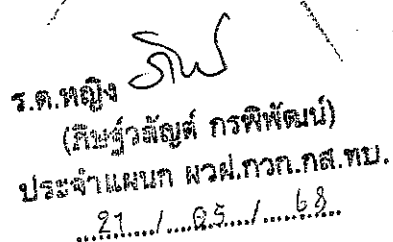 ร.ต.หญิง
(ภิษฐ์วลัญศ์ กรพิพัฒน์)
ประจำแผนก ผวฝ.กวก.กส.ทบ.
21 / 05 / 68